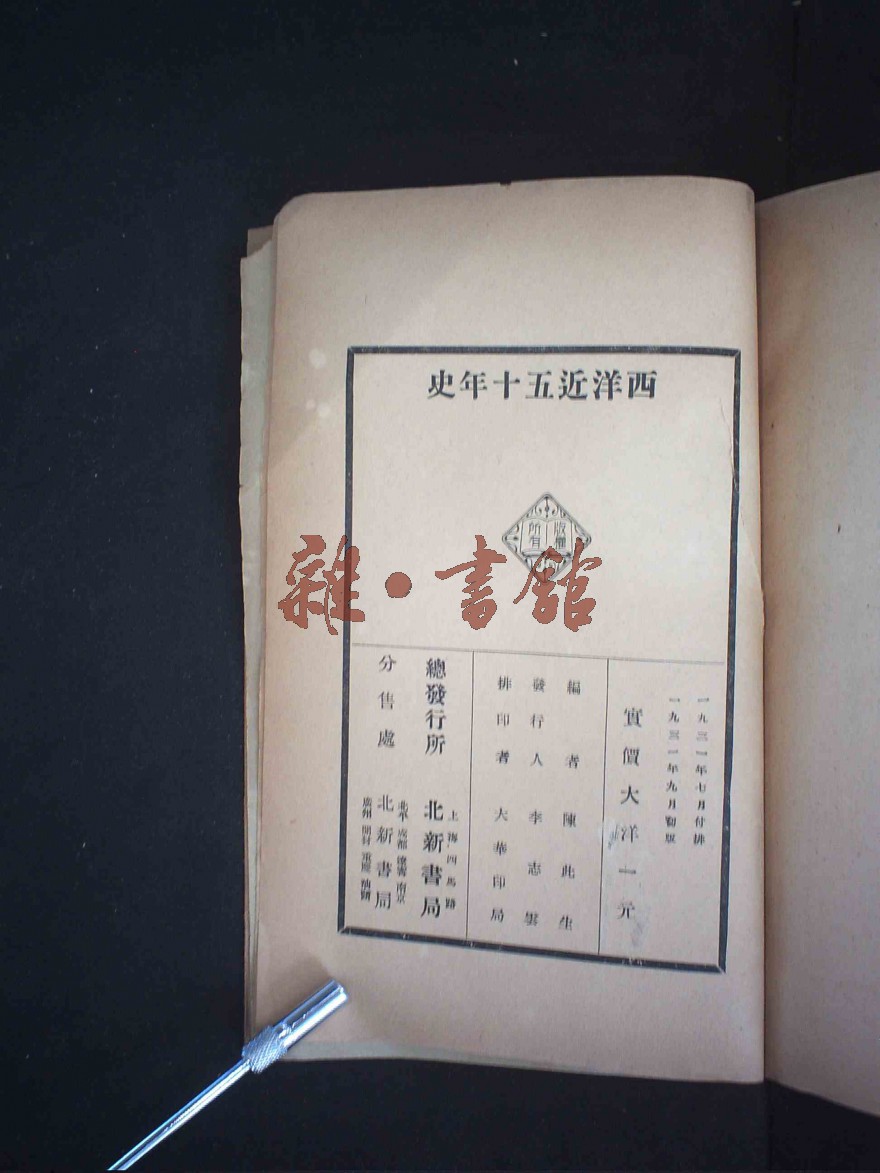 西洋近五十年史
版權
所有
雜·書館
一九三一年七月付排
一九三一年九月初版
實價大洋一元
編者 陳此生
發行人 李志雲
排印者 大華印局
總發行所 上海四馬路 北新書局
分售處 北平 成都 南京 北新書局
廣州 開封 重慶 汕頭